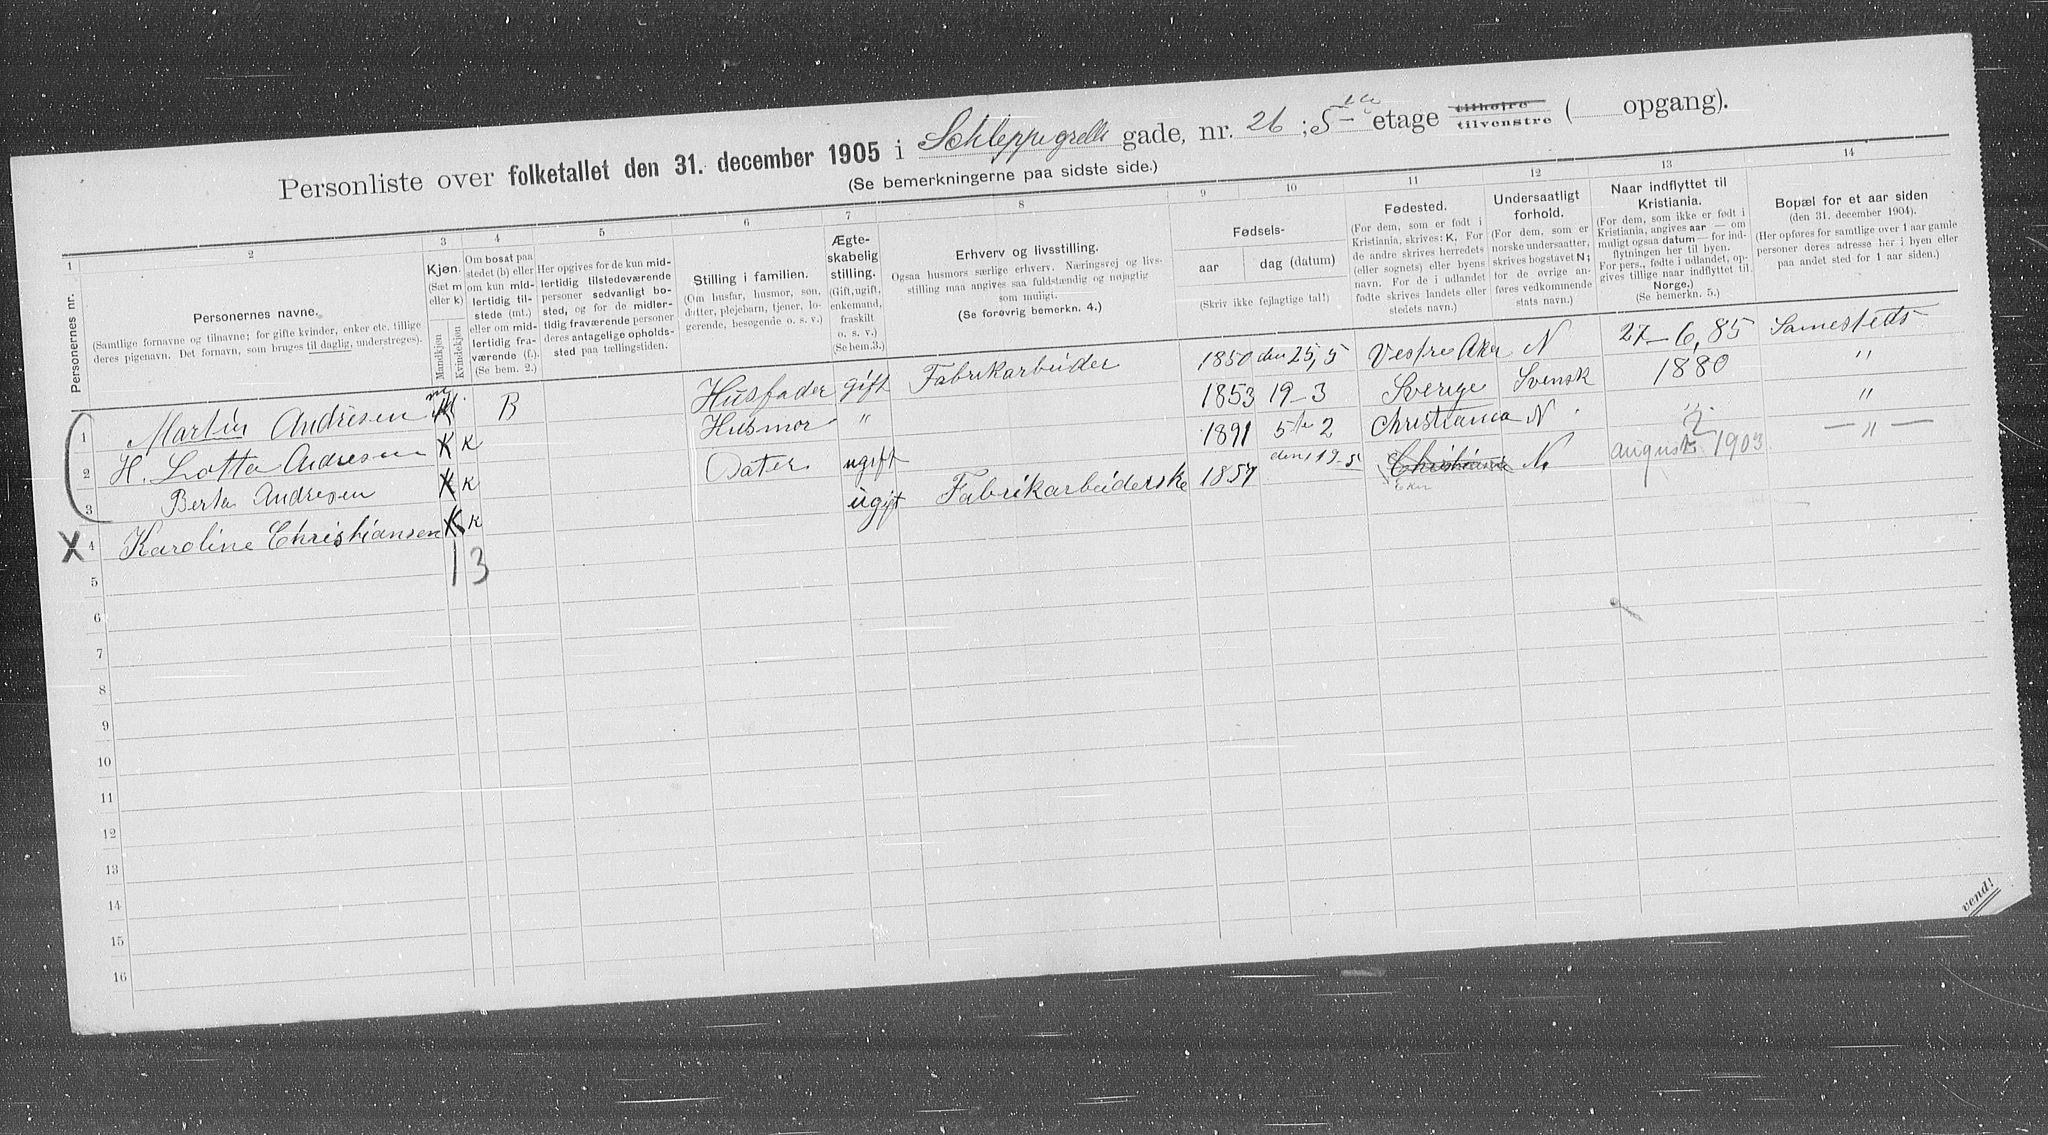 Personliste over folketallet den 31. december 1905 i Schleppegrells gade, nr. 26 ; 5te etage tilhøjre tilvenstre ( opgang).
(Se bemerkningerne paa sidste side.)
1 2 3 4 5 6 7 8 9 10 11 12 13 14
Personernes nr.
Personernes navne.
(Samtlige fornavne og tilnavne; for gifte kvinder, enker etc. tillige
deres pigenavn. Det fornavn, som bruges til daglig, understreges).
Kjøn.
(Sæt m
eller k)
Mandkjøn
Kvindekjøn
Om bosat paa
stedet (b) eller
om kun mid-
lertidig til-
stede (mt.)
eller om mid-
lertidig fra-
værende (f.).
(Se bem. 2.)
Her opgives for de kun mid-
lertidig tilstedeværende
personer sedvanligt bo-
sted, og for de midler-
tidig fraværende personer
deres antagelige opholds-
sted paa tællingstiden.
Stilling i familien.
(Om husfar, husmor, søn,
datter, plejebarn, tjener, lo-
gerende, besøgende o. s. v.)
Ægte-
skabelig
stilling.
(Gift, ugift,
enkemand,
fraskilt
o. s. v.)
(Se bem.3.)
Erhverv og livsstilling.
Ogsaa husmors særlige erhverv. Næringsvej og livs-
stilling maa angives saa fuldstændig og nøjagtig
som muligt.
(Se forøvrig bemerkn. 4.)
Fødsels-
aar
dag (datum)
(Skriv ikke fejlagtige tal!)
Fødested.
(For dem, som er født i
Kristiania, skrives: K. For
de andre skrives herredets
(eller sognets) eller byens
navn. For de i udlandet
fødte skrives landets eller
stedets navn.)
Undersaatligt
forhold.
(For dem, som er
norske undersaatter,
skrives bogstavet N;
for de øvrige an-
føres vedkommende
stats navn.)
Naar indflyttet til
Kristiania.
(For dem, som ikke er født i
Kristiania, angives aar — om
muligt ogsaa datum — for ind-
flytningen her til byen.
For pers., fødte i udlandet, op-
gives tillige naar indflyttet til
Norge.)
(Se bemerkn. 5.)
Bopæl for et aar siden
(den 31. december 1904).
(Her opføres for samtlige over 1 aar gamle
personer deres adresse her i byen eller
paa andet sted for 1 aar siden.)
1 Martin Andresen m B Husfader gift Fabrikarbeider 1850 den 25,5 Vestre Aker N 27–6,85 Samesteds
2 H. Lotta Andresen K K Husmor " 1853 19–3 Sverige Svensk 1880 "
3 Berta Andresen K K Dater ugift 1891 5te 2 Christiania N. " "
X 4 Karoline Christiansen K K ugift Fabrikarbeiderske 1857 den 19–5 Christiania Eker N. august 1903 — " —
1 3
5
6
7
8
9
10
11
12
13
14
15
16
vend!